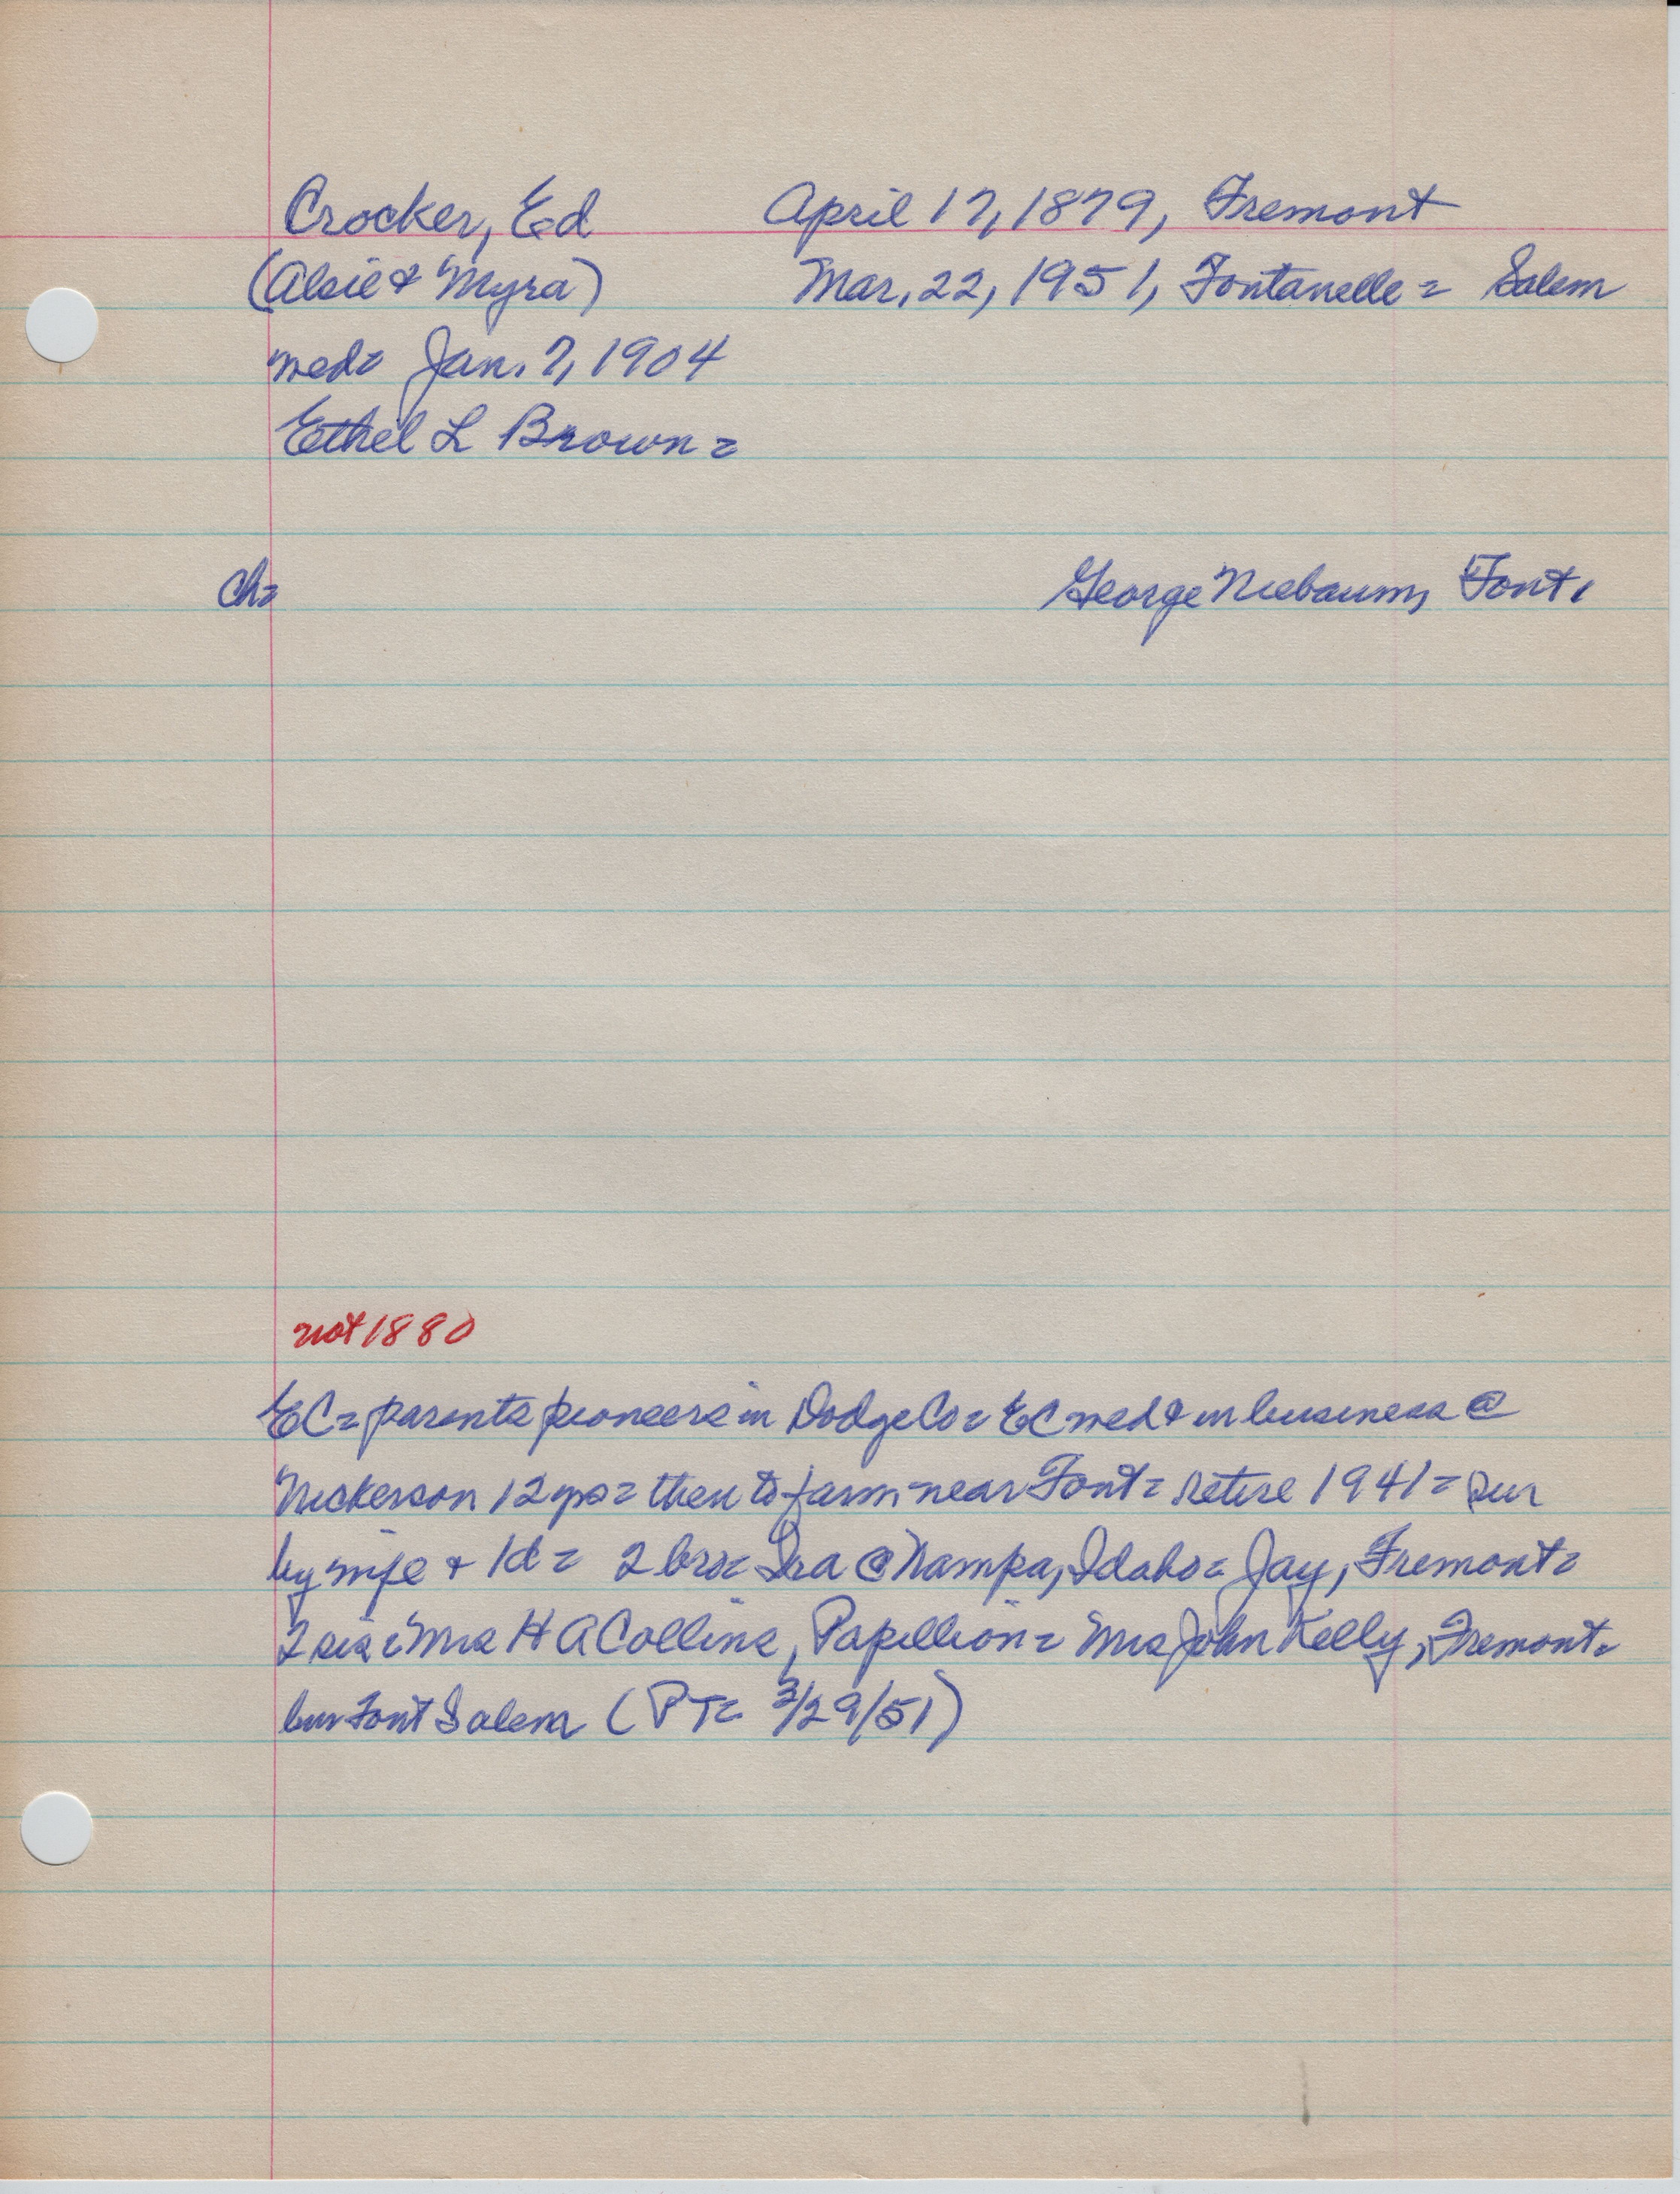 Crocker, Ed April 17, 1879, Fremont
(Alsie & Myra) Mar. 22, 1951, Fontanelle = Salem
med= Jan. 7, 1904
Ethel L Brown =
ch= George Niebaum, Font.
not 1880
EC = parents pioneers in Dodge Co = EC med & in business @
Nickerson 12 yrs = then to farm near Font = retire 1941 = sur
by wife & 1d = 2 bro = Ira @ Nampa, Idaho = Jay, Fremont =
2 sis = Mrs H A Collins, Papillion = Mrs John Kelly, Fremont =
bur Font Salem (PT= 3/29/51)